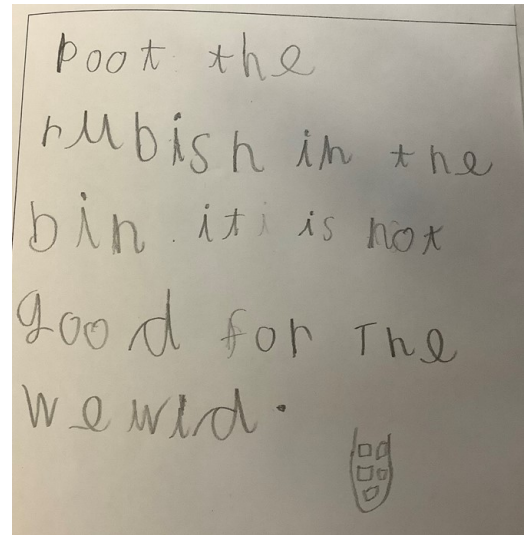 poot the
rubish in the
bin. iti is not
good for The
wewld.